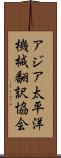 アジア太平洋
機械翻訳協会